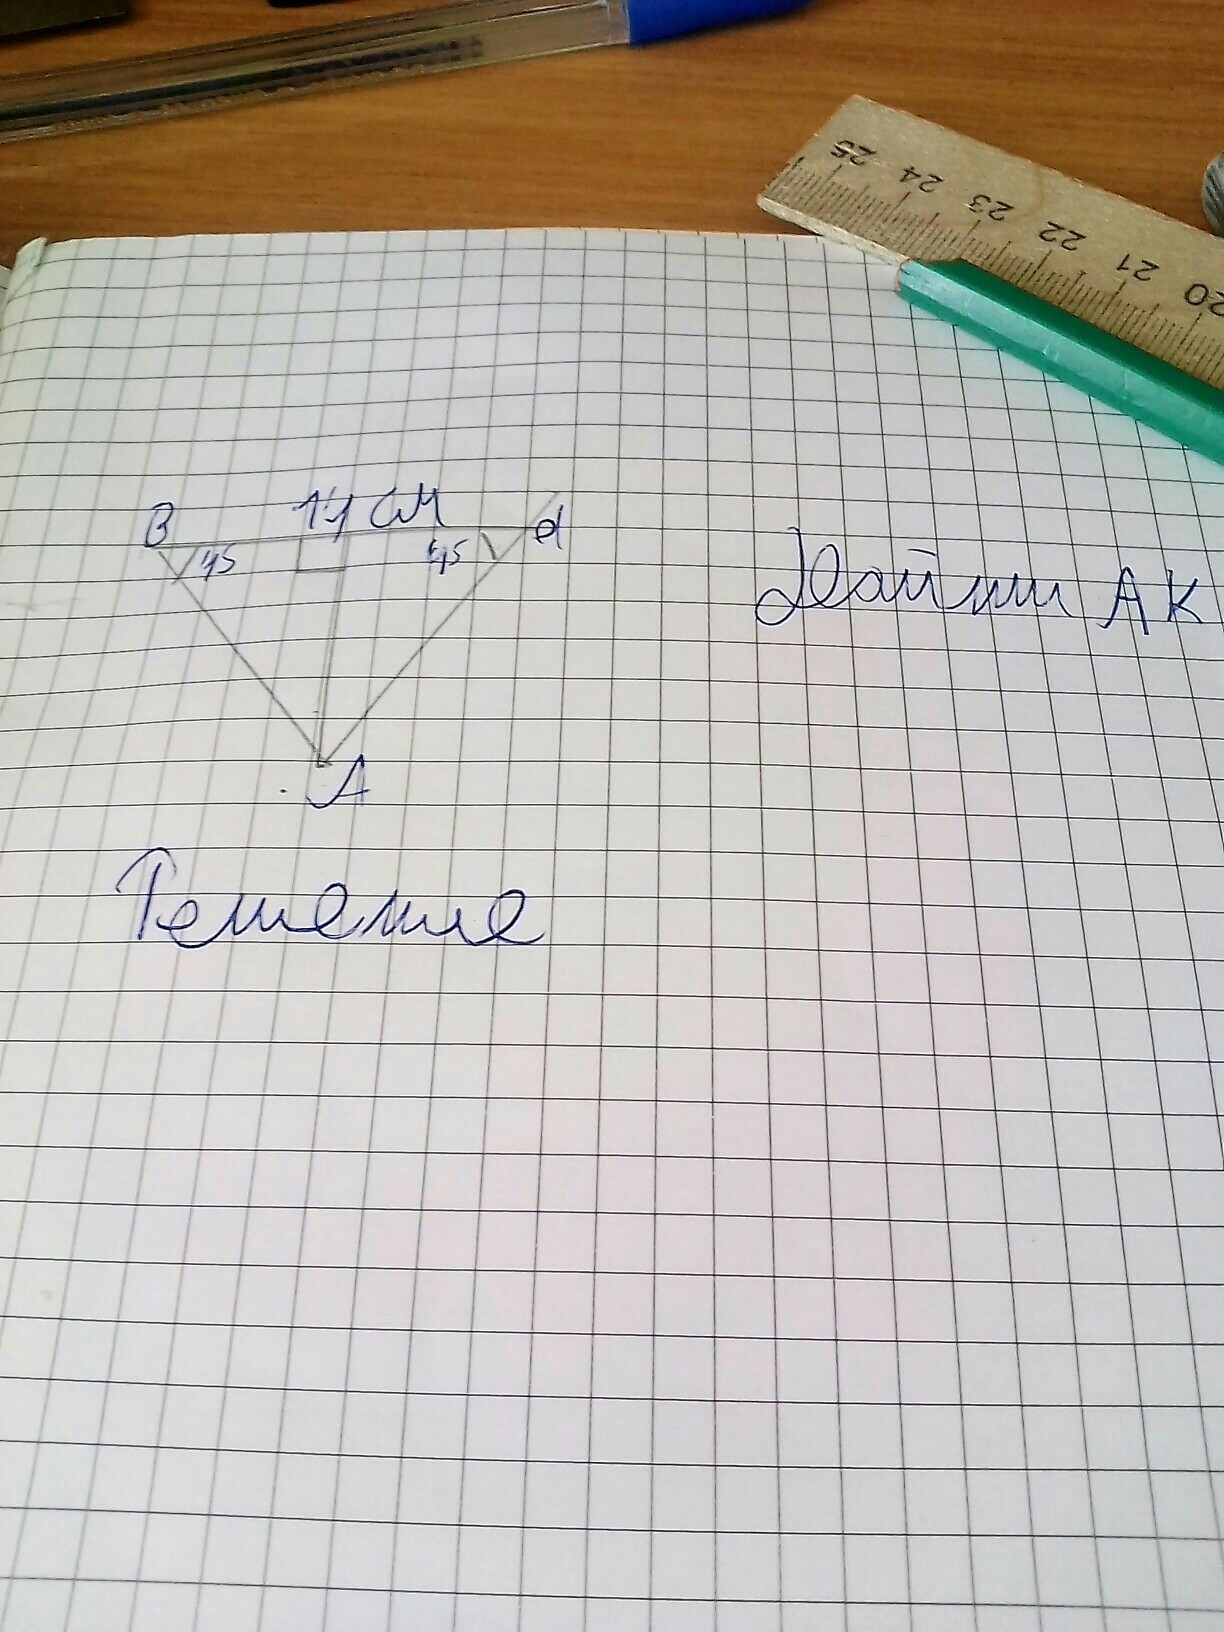 25 24 23 22 21 20
В 14 см d
45 45
Найти АК
А
Решение